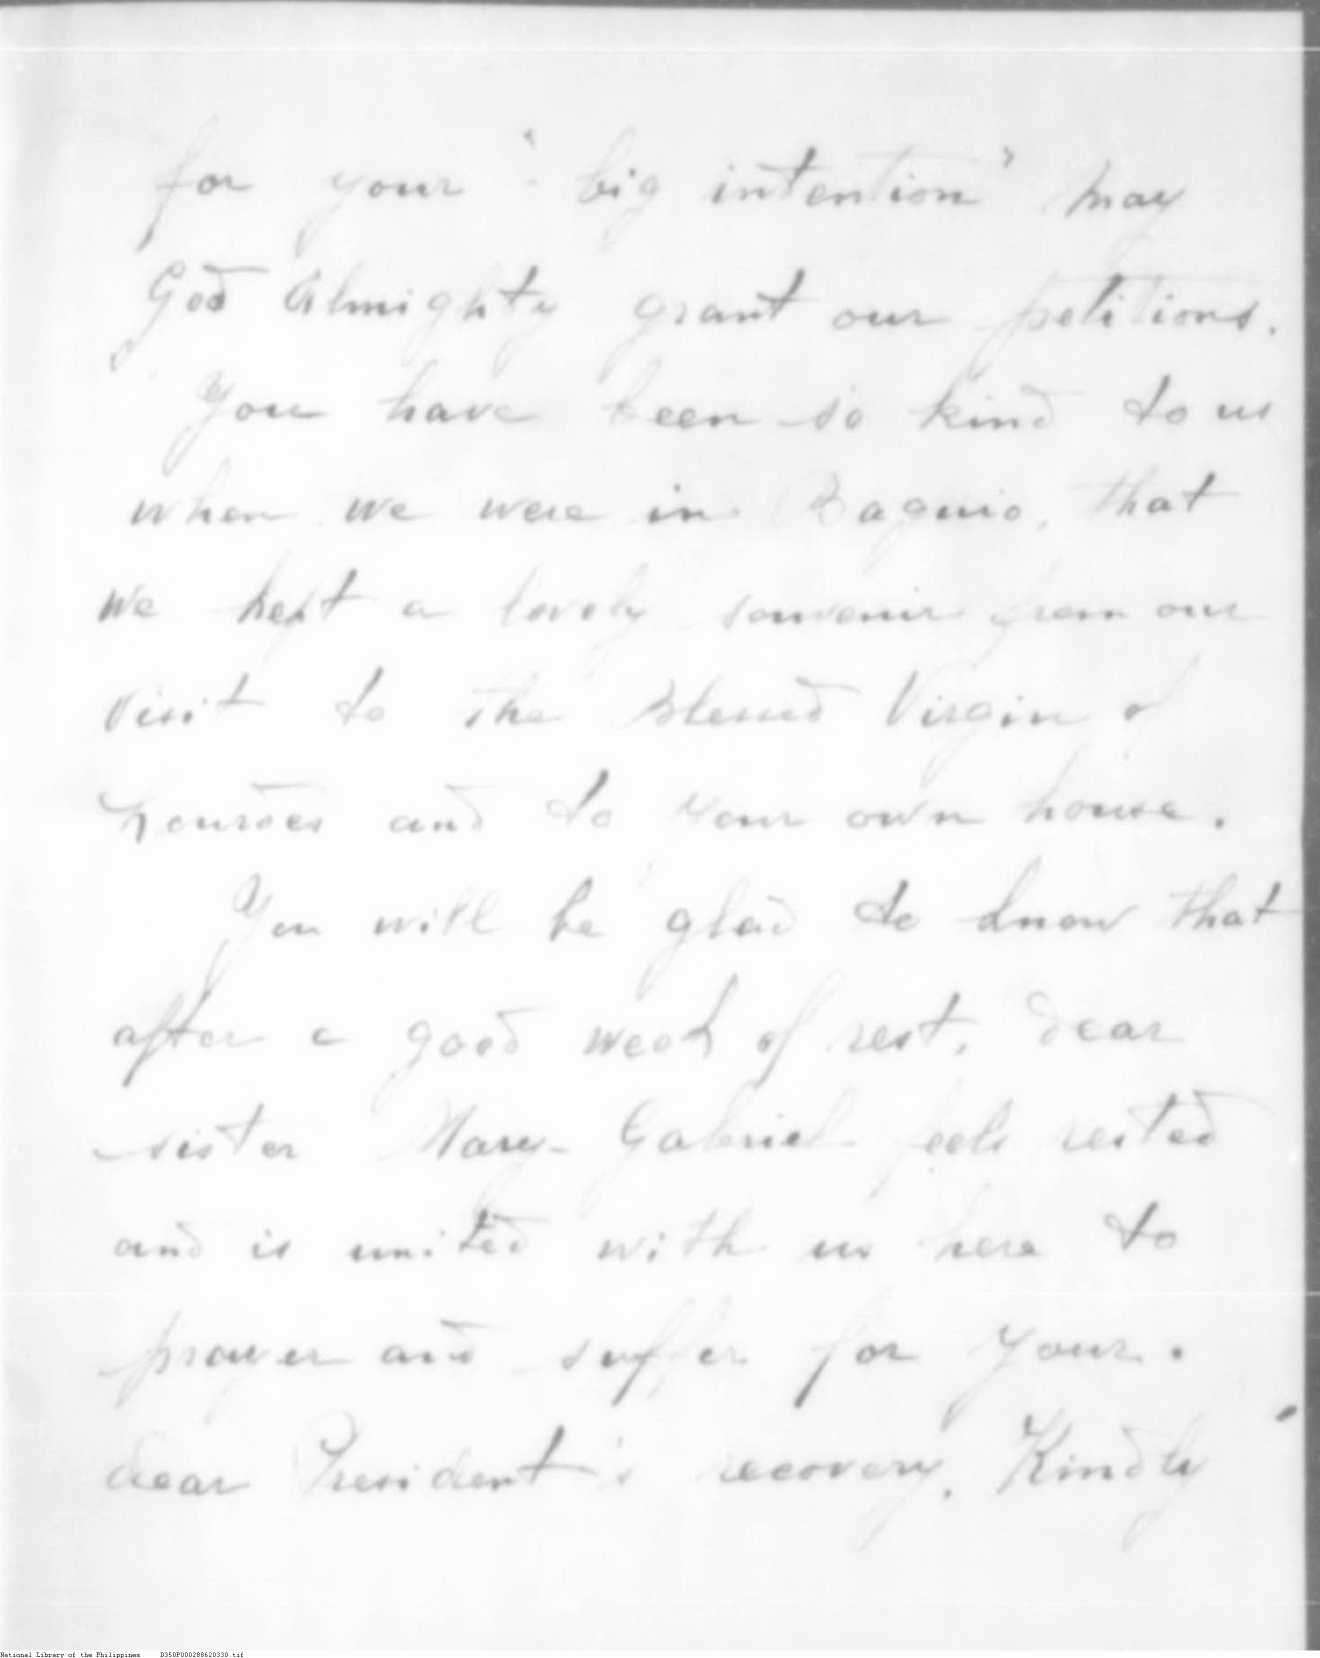 for your "big intention" may
God Almighty grant our petitions.
You have been so kind to us
when we were in Baguio, that
we kept a lovely souvenir from our
visit to the Blessed Virgin of
Lourdes and to your own house.
You will be glad to know that
after a good week of rest, dear
sister Mary-Gabriel feels rested
and is united with us here to
prayer and suffer for your.
dear President's recovery. Kindly
National Library of the Philippines D350P000288620330.tif